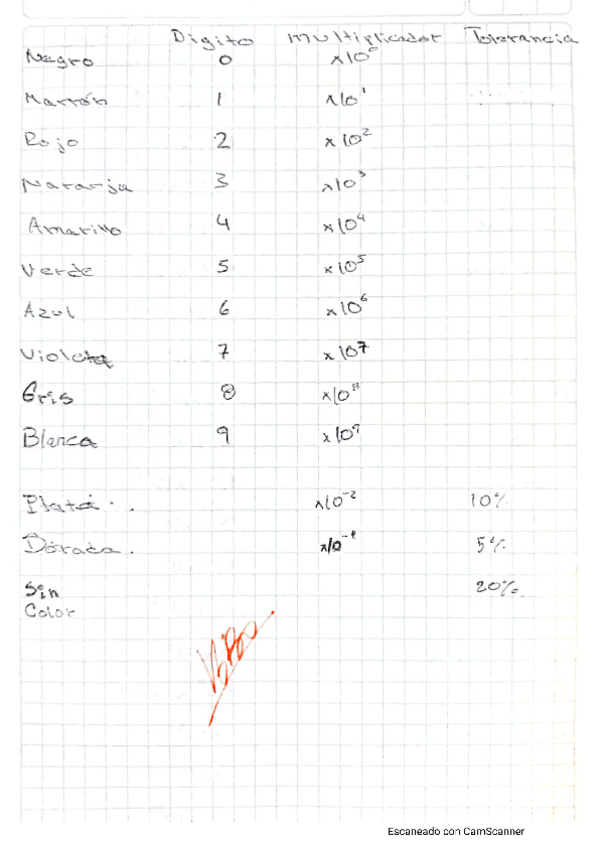 Digito Multiplicador Tolerancia
Negro 0 x10⁰
Marrón 1 x10¹
Rojo 2 x10²
Naranja 3 x10³
Amarillo 4 x10⁴
Verde 5 x10⁵
Azul 6 x10⁶
Violeta 7 x10⁷
Gris 8 x10⁸
Blanca 9 x10⁹
Plata x10⁻² 10%
Dorada. x10⁻¹ 5%
Sin 20%.
Color
Escaneado con CamScanner